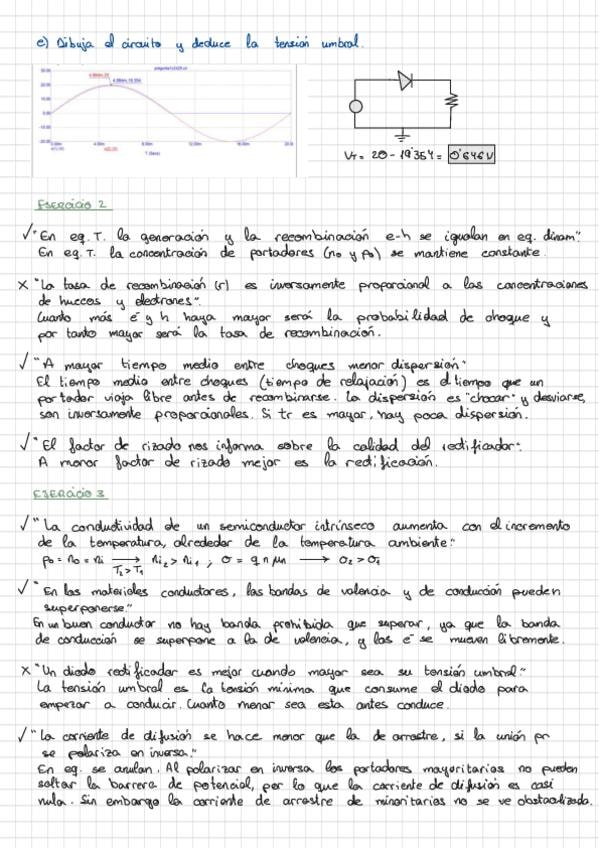 e) Dibuja el circuito y deduce la tensión umbral.
30.00
20.00
10.00
0.00
-10.00
-20.00
4.00m
8.00m
12.00m
16.00m
20.0m
T (Secs)
VT = 20 - 19'354 = 0'646V
EJERCICIO 2
✓ "En eq. T. la generación y la recombinación e-h se igualan en eq. dinam."
En eq. T. la concentración de portadores (no y po) se mantiene constante.
X "La tasa de recombinación (r) es inversamente proporcional a las concentraciones
de huecos y electrones".
Cuanto más e⁻ y h haya mayor será la probabilidad de choque y
por tanto mayor será la tasa de recombinación.
✓ "A mayor tiempo medio entre choques menor dispersión"
El tiempo medio entre choques (tiempo de relajación) es el tiempo que un
portador viaja libre antes de recombinarse. La dispersión es "chocar" y desviarse,
son inversamente proporcionales. Si tr es mayor, hay poca dispersión.
✓ "El factor de rizado nos informa sobre la calidad del rectificador".
A menor factor de rizado mejor es la rectificación.
EJERCICIO 3
✓ "La conductividad de un semiconductor intrínseco aumenta con el incremento
de la temperatura, alrededor de la temperatura ambiente."
po = no = ni → T2>T1 ni2 > ni1 ; σ = q n μn → σ2 > σ1
✓ "En las materiales conductores, las bandas de valencia y de conducción pueden
superponerse."
En un buen conductor no hay banda prohibida que superar, ya que la banda
de conducción se superpone a la de valencia, y los e⁻ se mueven libremente.
X "Un diodo rectificador es mejor cuando mayor sea su tensión umbral."
La tensión umbral es la tensión mínima que consume el diodo para
empezar a conducir. Cuanto menor sea esta antes conduce.
✓ "La corriente de difusión se hace menor que la de arrastre, si la unión pn
se polariza en inversa."
En eq. se anulan. Al polarizar en inversa los portadores mayoritarios no pueden
saltar la barrera de potencial, por lo que la corriente de difusión es casi
nula. Sin embargo la corriente de arrastre de minoritarios no se ve obstaculizada.